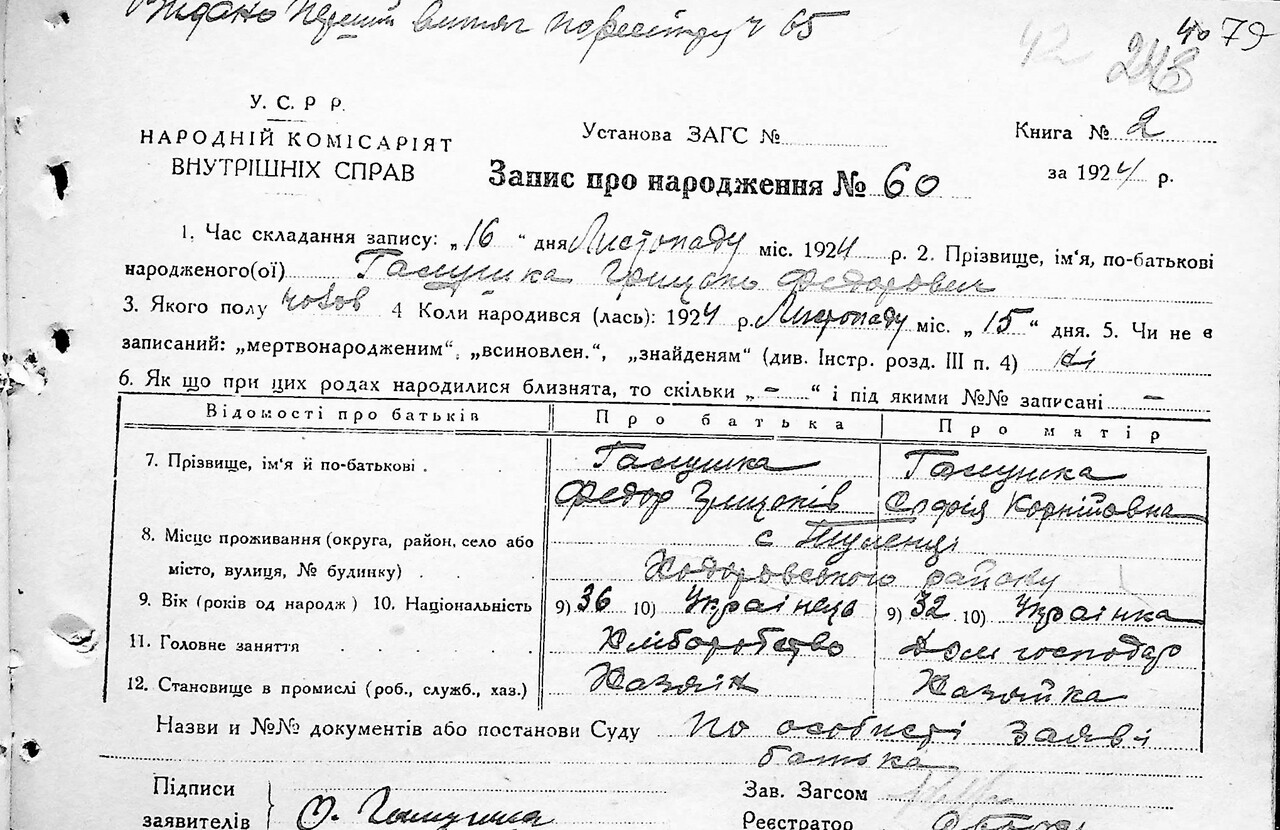 Видано перший витяг по реєстру ч 65
40 79
42 243
У. С. Р Р.
НАРОДНІЙ КОМІСАРІЯТ
ВНУТРІШНІХ СПРАВ
Установа ЗАГС №
Книга № 2
за 1924 р.
Запис про народження № 60
1. Час складання запису: „16“ дня Листопаду міс. 1924 р. 2. Прізвище, ім'я, по-батькові
народженого(ої) Галушка Грицько Федорович
3. Якого полу чолов 4 Коли народився (лась): 1924 р. Листопаду міс. „15“ дня. 5. Чи не є
записаний: „мертвонародженим“, „всиновлен.“, „знайденям“ (див. Інстр. розд. III п. 4) ні
6. Як що при цих родах народилися близнята, то скільки „–“ і під якими №№ записані –
Відомості про батьків Про батька Про матір
7. Прізвище, ім'я й по-батькові Галушка Галушка
Федор Грицьків Софія Корнійовна
8. Місце проживання (округа, район, село або с Туленці
місто, вулиця, № будинку) Ходоровського району
9. Вік (років од народж) 10. Національність 9) 36 10) Українець 9) 32 10) Українка
11. Головне заняття Хліборобство Дом господар
12. Становище в промислі (роб., служб., хаз.) Хазяїн Хазяйка
Назви и №№ документів або постанови Суду По особисті заяві
батька
Підписи Зав. Загсом
заявителів Ф. Галушка Реєстратор